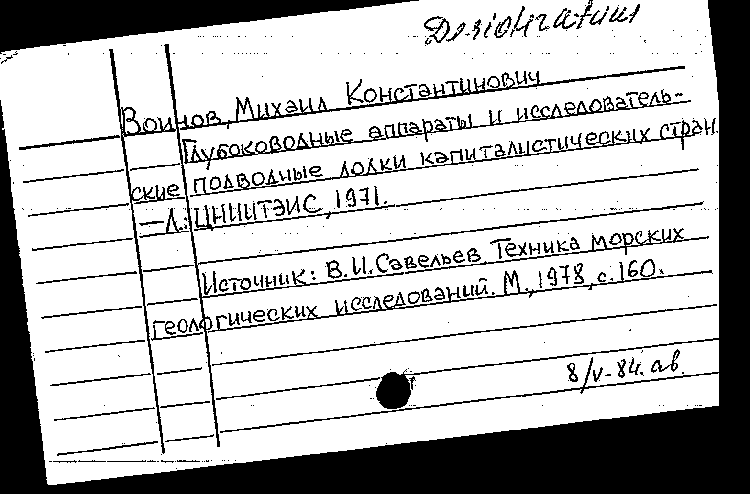 Desideratum
Воинов, Михаил Константинович
Глубоководные аппараты и исследователь-
ские подводные лодки капиталистических стран.
— Л.: ЦНИИТЭИС, 1971.
Источник: В.И. Савельев. Техника морских
геологических исследований. М., 1978, с. 160.
8/V-84. ав.